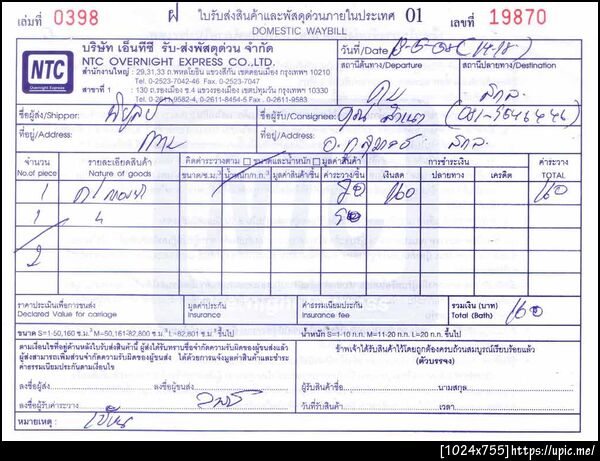 เล่มที่ 0398 ฝ ใบรับส่งสินค้าและพัสดุด่วนภายในประเทศ 01 เลขที่ 19870
DOMESTIC WAYBILL
NTC
Overnight Express
บริษัท เอ็นทีซี รับ-ส่งพัสดุด่วน จำกัด
NTC OVERNIGHT EXPRESS CO.,LTD.
สำนักงานใหญ่ : 29,31,33 ถ.พหลโยธิน แขวงสีกัน เขตดอนเมือง กรุงเทพฯ 10210
Tel. 0-2523-7042-46 Fax. 0-2523-7047
สาขาที่ 1 : 130 ถ.รองเมือง ซ.4 แขวงรองเมือง เขตปทุมวัน กรุงเทพฯ 10330
Tel. 0-2611-9582-4, 0-2611-8454-5 Fax. 0-2611-9583
วันที่/Date
สถานีต้นทาง/Departure สถานีปลายทาง/Destination
ชื่อผู้ส่ง/Shipper: ชื่อผู้รับ/Consignee:
ที่อยู่/Address: ที่อยู่/Address:
จำนวน รายละเอียดสินค้า คิดค่าระวางตาม ขนาดและน้ำหนัก มูลค่าสินค้า การชำระเงิน ค่าระวาง
No.of piece Nature of goods ขนาด/ซ.ม.³ น้ำหนัก/ก.ก.³ มูลค่าสินค้า/ชิ้น ค่าระวาง/ชิ้น เงินสด ปลายทาง เครดิต TOTAL
1 160 160
1
2
ราคาประเมินเพื่อการขนส่ง มูลค่าประกัน ค่าธรรมเนียมประกัน รวมเงิน (บาท) 160
Declared Value for carriage Insurance Insurance fee Total (Bath)
ขนาด S=1-50,160 ซ.ม.³ M=50,161-82,800 ซ.ม.³ L=82,801 ซ.ม.³ ขึ้นไป น้ำหนัก S=1-10 ก.ก. M=11-20 ก.ก. L=20 ก.ก. ขึ้นไป
ตามเงื่อนไขที่อยู่ด้านหลังใบรับส่งสินค้านี้ ผู้ส่งได้รับทราบข้อจำกัดความรับผิดของผู้ขนส่งแล้ว
ผู้ส่งสามารถเพิ่มส่วนจำกัดความรับผิดของผู้ขนส่ง ได้ด้วยการแจ้งมูลค่าสินค้าและชำระ
ค่าธรรมเนียมประกันตามเงื่อนไข
ข้าพเจ้าได้รับสินค้าไว้โดยถูกต้องครบถ้วนสมบูรณ์เรียบร้อยแล้ว
(ตัวบรรจง)
ลงชื่อผู้ส่ง ลงชื่อผู้ขนส่ง ผู้รับสินค้าชื่อ นามสกุล
ลงชื่อผู้รับค่าระวาง วันที่รับสินค้า เวลา
หมายเหตุ :
[1024x755]https://upic.me/